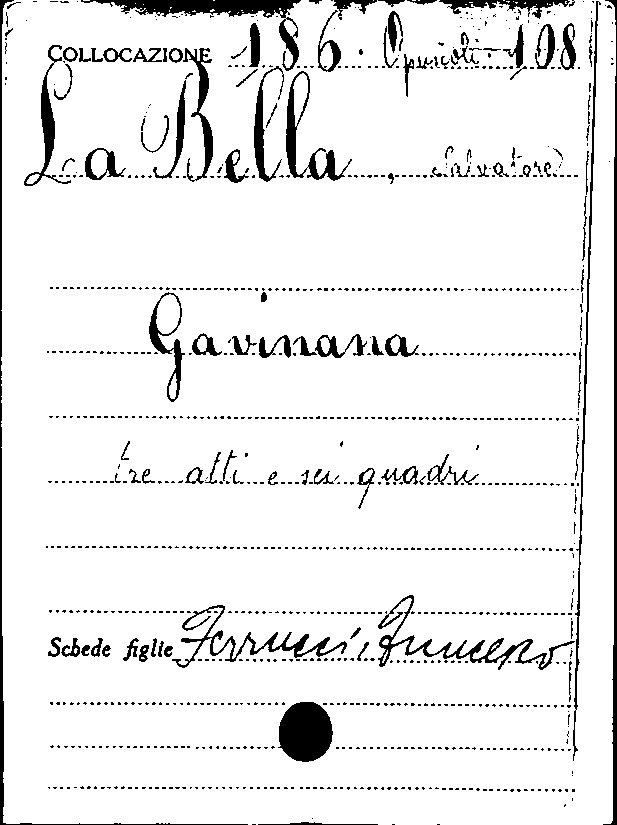 COLLOCAZIONE 186. Opuscoli - 108
La Bella, Salvatore
Gavinana
tre atti e sei quadri
Schede figlie Ferrucci, Francesco